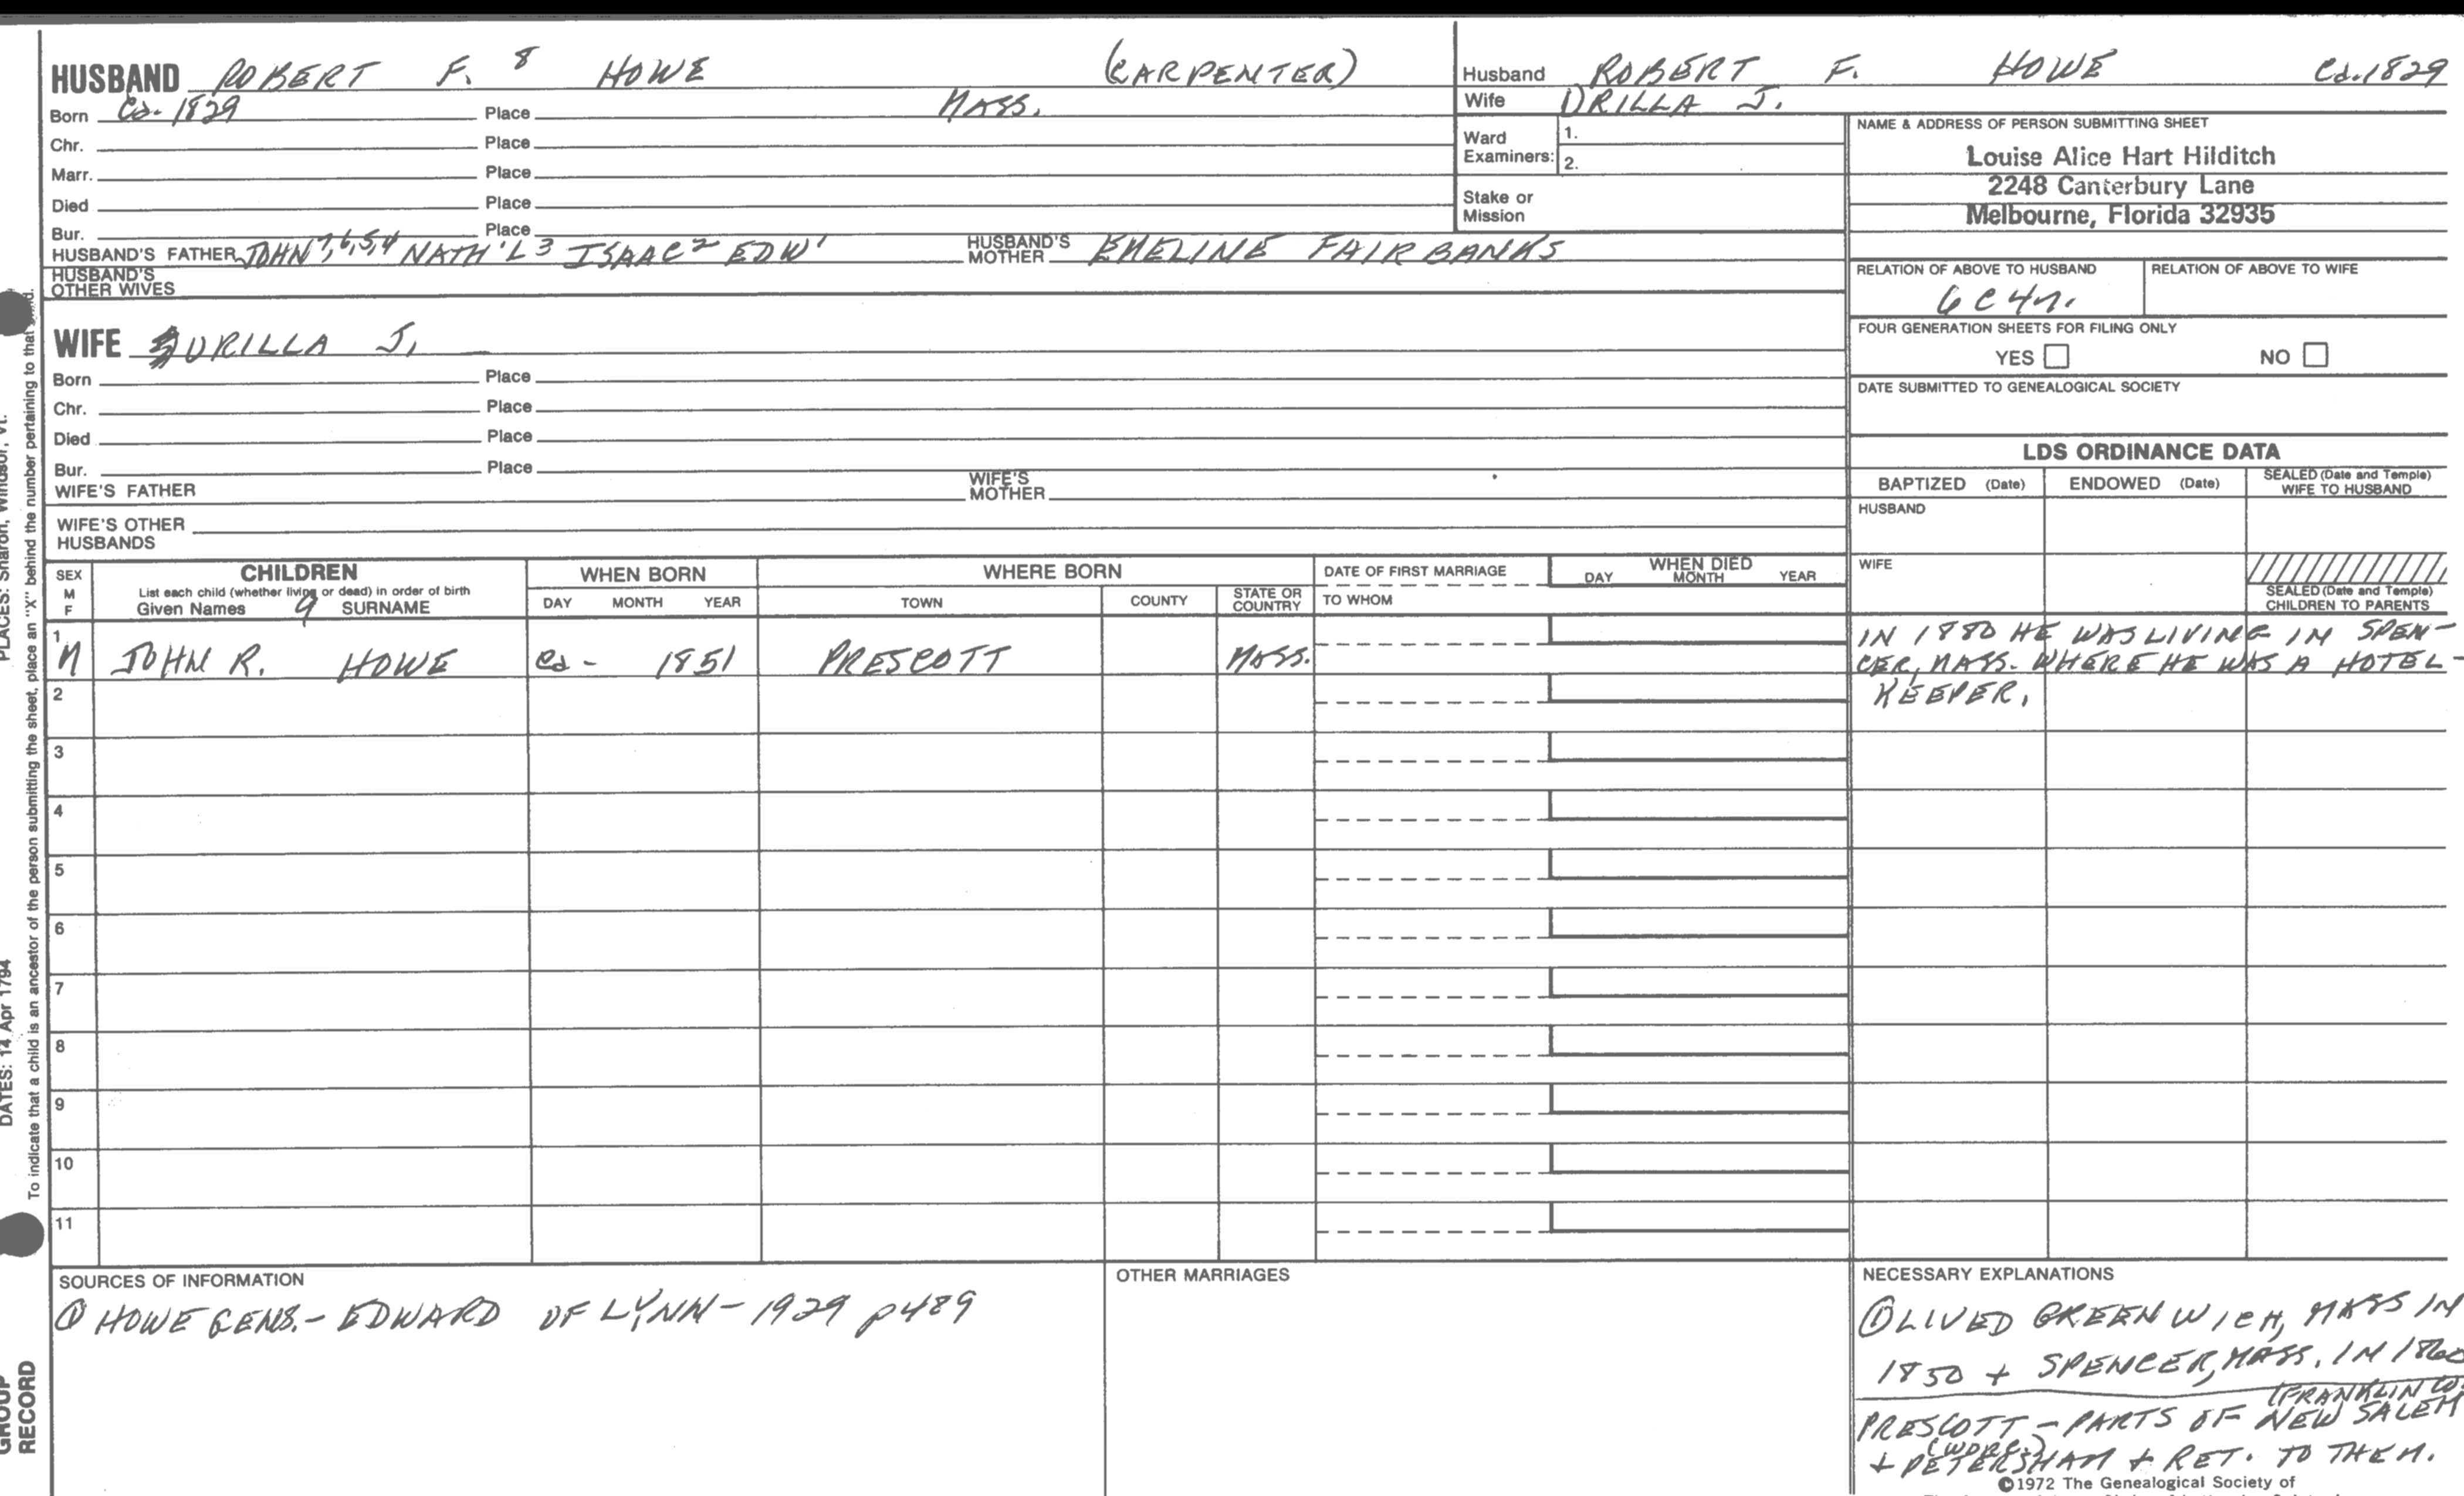 HUSBAND ROBERT F. 8 HOWE (CARPENTER)
Born Ca. 1829 Place MASS.
Chr. Place
Marr. Place
Died Place
Bur. Place
HUSBAND'S FATHER JOHN 7,6,5,4 NATH'L 3 ISAAC 2 EDW 1 HUSBAND'S MOTHER EMELINE FAIRBANKS
HUSBAND'S OTHER WIVES
Husband ROBERT F. HOWE Ca. 1829
Wife ORILLA J.
Ward Examiners: 1.
2.
Stake or Mission
NAME & ADDRESS OF PERSON SUBMITTING SHEET
Louise Alice Hart Hilditch
2248 Canterbury Lane
Melbourne, Florida 32935
RELATION OF ABOVE TO HUSBAND RELATION OF ABOVE TO WIFE
6 C 4 r.
FOUR GENERATION SHEETS FOR FILING ONLY
YES NO
DATE SUBMITTED TO GENEALOGICAL SOCIETY
WIFE URILLA J.
Born Place
Chr. Place
Died Place
Bur. Place
WIFE'S FATHER WIFE'S MOTHER
WIFE'S OTHER HUSBANDS
LDS ORDINANCE DATA
BAPTIZED (Date) ENDOWED (Date) SEALED (Date and Temple) WIFE TO HUSBAND
HUSBAND
WIFE
SEALED (Date and Temple) CHILDREN TO PARENTS
SEX M F CHILDREN WHEN BORN WHERE BORN DATE OF FIRST MARRIAGE WHEN DIED
List each child (whether living or dead) in order of birth
Given Names 9 SURNAME DAY MONTH YEAR TOWN COUNTY STATE OR COUNTRY TO WHOM DAY MONTH YEAR
1 M JOHN R. HOWE Ca - 1851 PRESCOTT MASS.
IN 1880 HE WAS LIVING IN SPEN-
CER, MASS. WHERE HE WAS A HOTEL-
KEEPER.
2
3
4
5
6
7
8
9
10
11
SOURCES OF INFORMATION
① HOWE GENS. - EDWARD OF LYNN - 1929 p489
OTHER MARRIAGES
NECESSARY EXPLANATIONS
① LIVED GREENWICH, MASS IN
1850 + SPENCER, MASS. IN 1860
(FRANKLIN CO.
PRESCOTT - PARTS OF NEW SALEM
(WORC.)
+ PETERSHAM + RET. TO THEM.
©1972 The Genealogical Society of
PLACES: Sharon, Windsor, Vt.
DATES: 14 Apr 1794
To indicate that a child is an ancestor of the person submitting the sheet, place an "X" behind the number pertaining to that
GROUP
RECORD